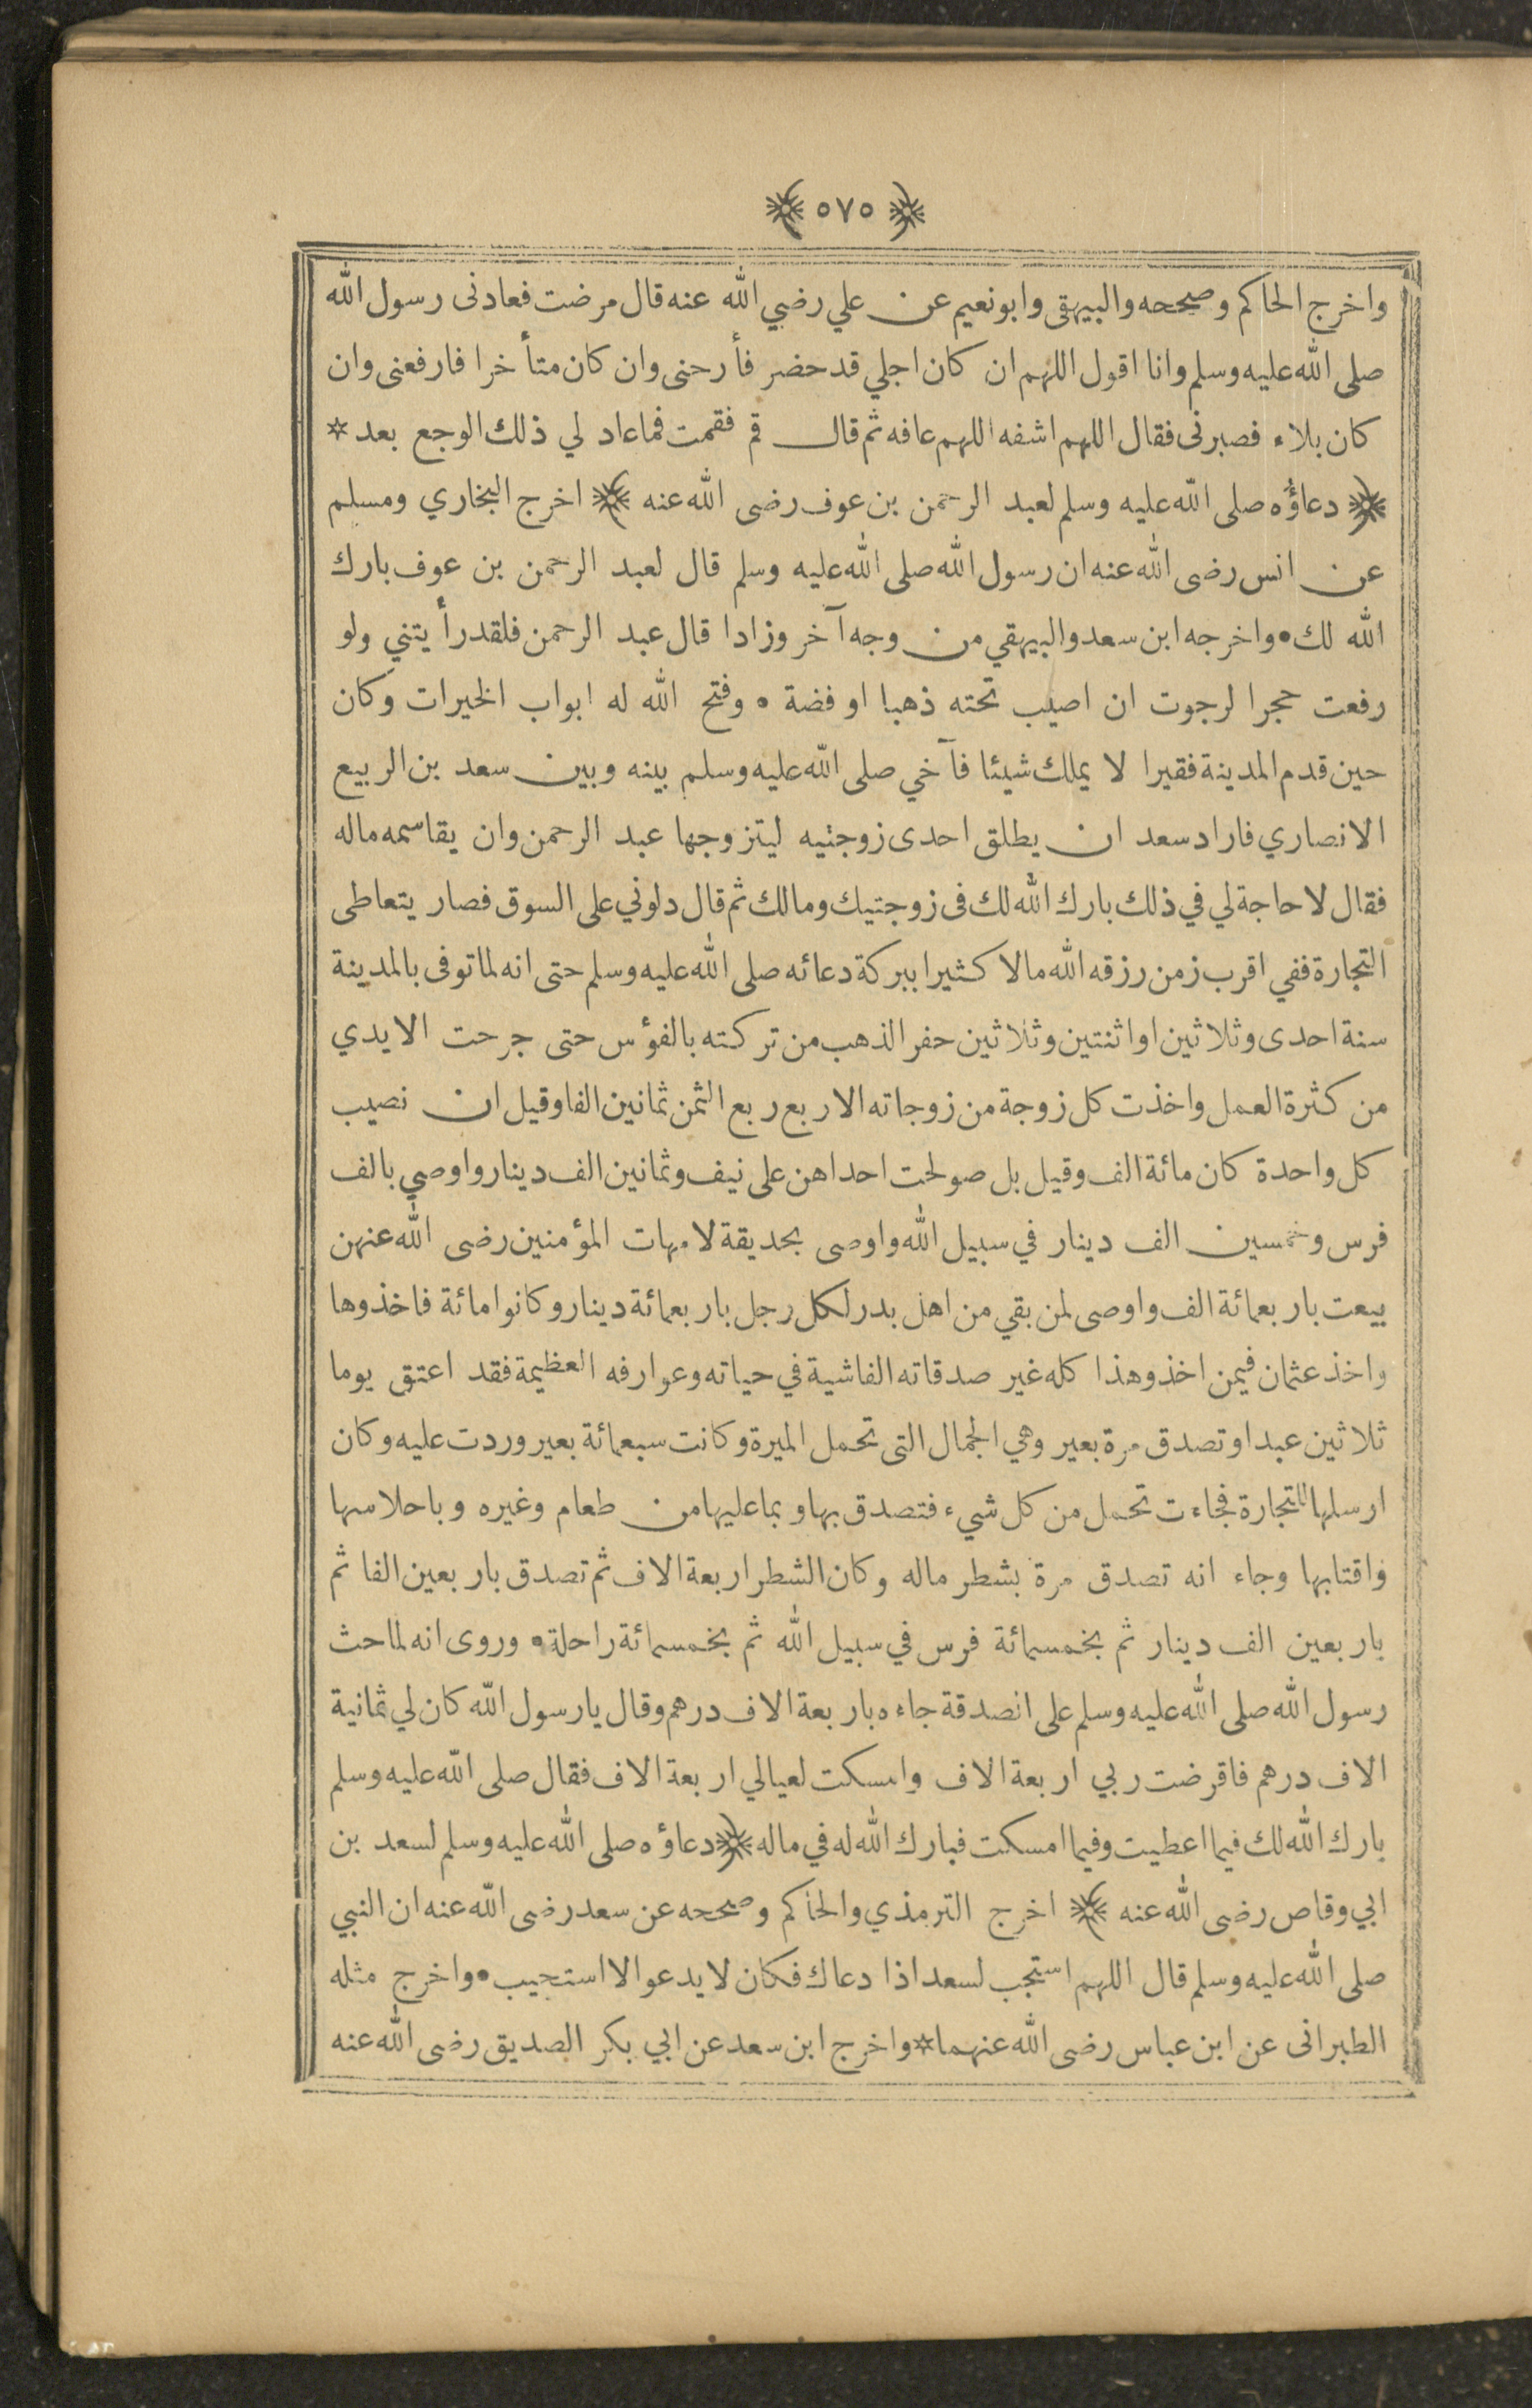 ﴿ ٥٧٥ ﴾
واخرج الحاكم وصححه والبيهقى وابونعيم عن علي رضي الله عنه قال مرضت فعادنى رسول الله
صلى الله عليه وسلم وانا اقول اللهم ان كان اجلي قد حضر فأرحنى وان كان متأخرا فارفعنى وان
كان بلاء فصبرنى فقال اللهم اشفه اللهم عافه ثم قال قم فقمت فماعاد لي ذلك الوجع بعد *
﴿ دعاؤه صلى الله عليه وسلم لعبد الرحمن بن عوف رضى الله عنه ﴾ اخرج البخاري ومسلم
عن انس رضى الله عنه ان رسول الله صلى الله عليه وسلم قال لعبد الرحمن بن عوف بارك
الله لك • واخرجه ابن سعد والبيهقي من وجه آخر وزادا قال عبد الرحمن فلقد رأيتني ولو
رفعت حجرا لرجوت ان اصيب تحته ذهبا او فضة • وفتح الله له ابواب الخيرات وكان
حين قدم المدينة فقيرا لا يملك شيئا فآخي صلى الله عليه وسلم بينه وبين سعد بن الربيع
الانصاري فاراد سعد ان يطلق احدى زوجتيه ليتزوجها عبد الرحمن وان يقاسمه ماله
فقال لا حاجة لي في ذلك بارك الله لك فى زوجتيك ومالك ثم قال دلوني على السوق فصار يتعاطى
التجارة ففي اقرب زمن رزقه الله مالا كثيرا ببركة دعائه صلى الله عليه وسلم حتى انه لما توفى بالمدينة
سنة احدى وثلاثين او اثنتين وثلاثين حفر الذهب من تركته بالفؤس حتى جرحت الايدي
من كثرة العمل واخذت كل زوجة من زوجاته الاربع ربع الثمن ثمانين الفا وقيل ان نصيب
كل واحدة كان مائة الف وقيل بل صولحت احداهن على نيف وثمانين الف دينار واوصي بالف
فرس وخمسين الف دينار في سبيل الله واوصى بحديقة لامهات المؤمنين رضى الله عنهن
بيعت باربعمائة الف واوصى لمن بقي من اهل بدر لكل رجل باربعمائة دينار وكانوا مائة فاخذوها
واخذ عثمان فيمن اخذ وهذا كله غير صدقاته الفاشية في حياته وعوارفه العظيمة فقد اعتق يوما
ثلاثين عبدا وتصدق مرة بعير وهي الجمال التى تحمل الميرة وكانت سبعمائة بعير وردت عليه وكان
ارسلها للتجارة فجاءت تحمل من كل شيء فتصدق بها وبما عليها من طعام وغيره وباحلاسها
واقتابها وجاء انه تصدق مرة بشطر ماله وكان الشطر اربعة الاف ثم تصدق باربعين الفا ثم
باربعين الف دينار ثم بخمسمائة فرس في سبيل الله ثم بخمسمائة راحلة • وروى انه لما حث
رسول الله صلى الله عليه وسلم على انصدقة جاءه باربعة الاف درهم وقال يا رسول الله كان لي ثمانية
الاف درهم فاقرضت ربي اربعة الاف وامسكت لعيالي اربعة الاف فقال صلى الله عليه وسلم
بارك الله لك فيما اعطيت وفيما امسكت فبارك الله له في ماله ﴿ دعاؤه صلى الله عليه وسلم لسعد بن
ابي وقاص رضى الله عنه ﴾ اخرج الترمذي والحاكم وصححه عن سعد رضى الله عنه ان النبي
صلى الله عليه وسلم قال اللهم استجب لسعد اذا دعاك فكان لا يدعو الا استجيب • واخرج مثله
الطبرانى عن ابن عباس رضى الله عنهما * واخرج ابن سعد عن ابي بكر الصديق رضى الله عنه